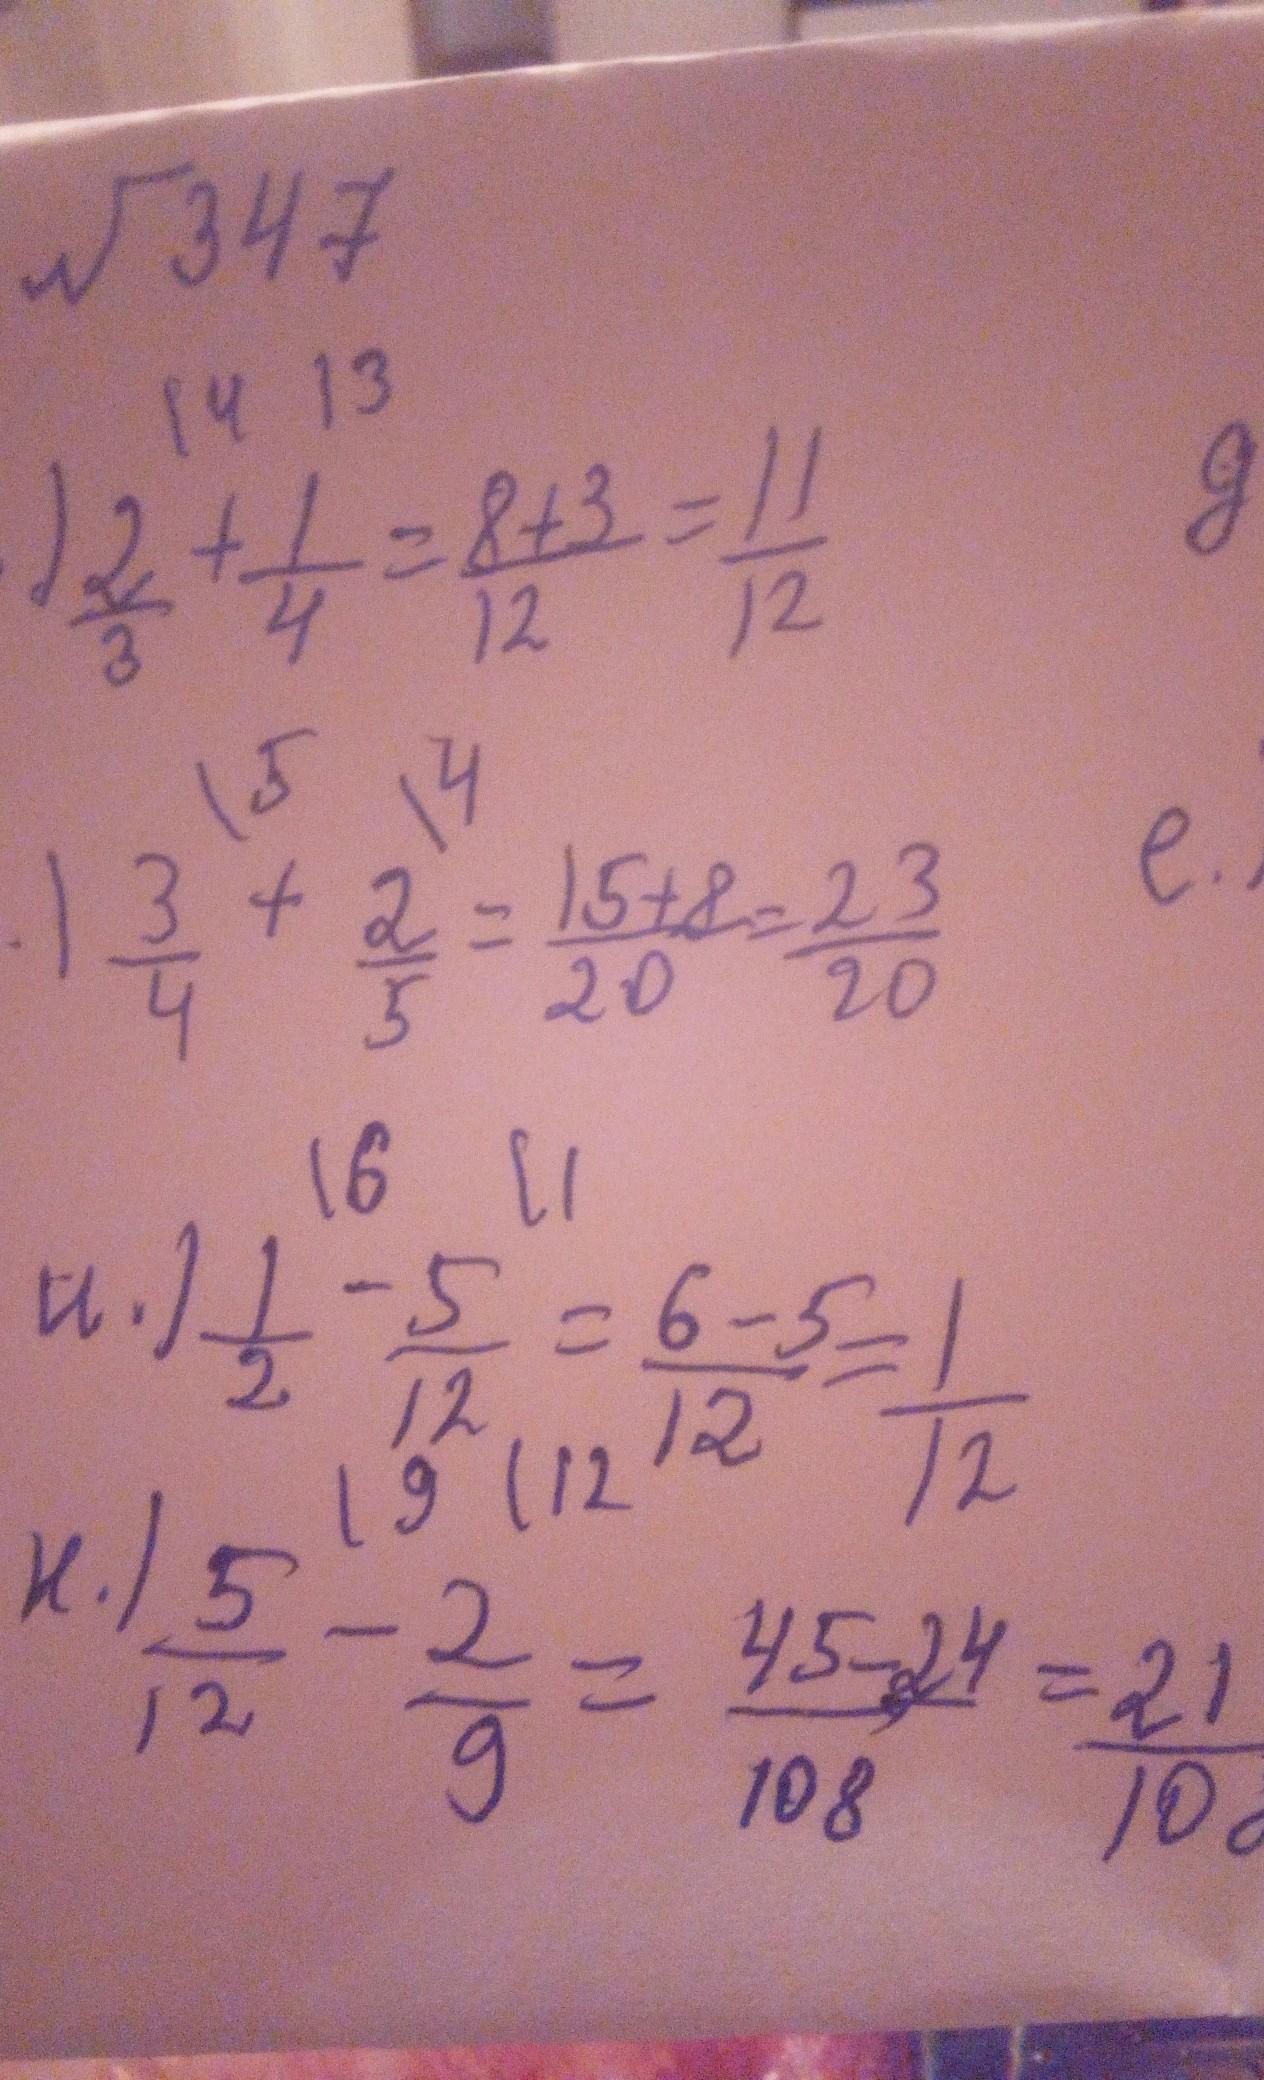 √347
\4 \3
.) 2/3 + 1/4 = 8+3/12 = 11/12
g
\5 \4
.) 3/4 + 2/5 = 15+8/20 = 23/20
e.)
\6 \1
и.) 1/2 - 5/12 = 6-5/12 = 1/12
\9 \12
к.) 5/12 - 2/9 = 45-24/108 = 21/108